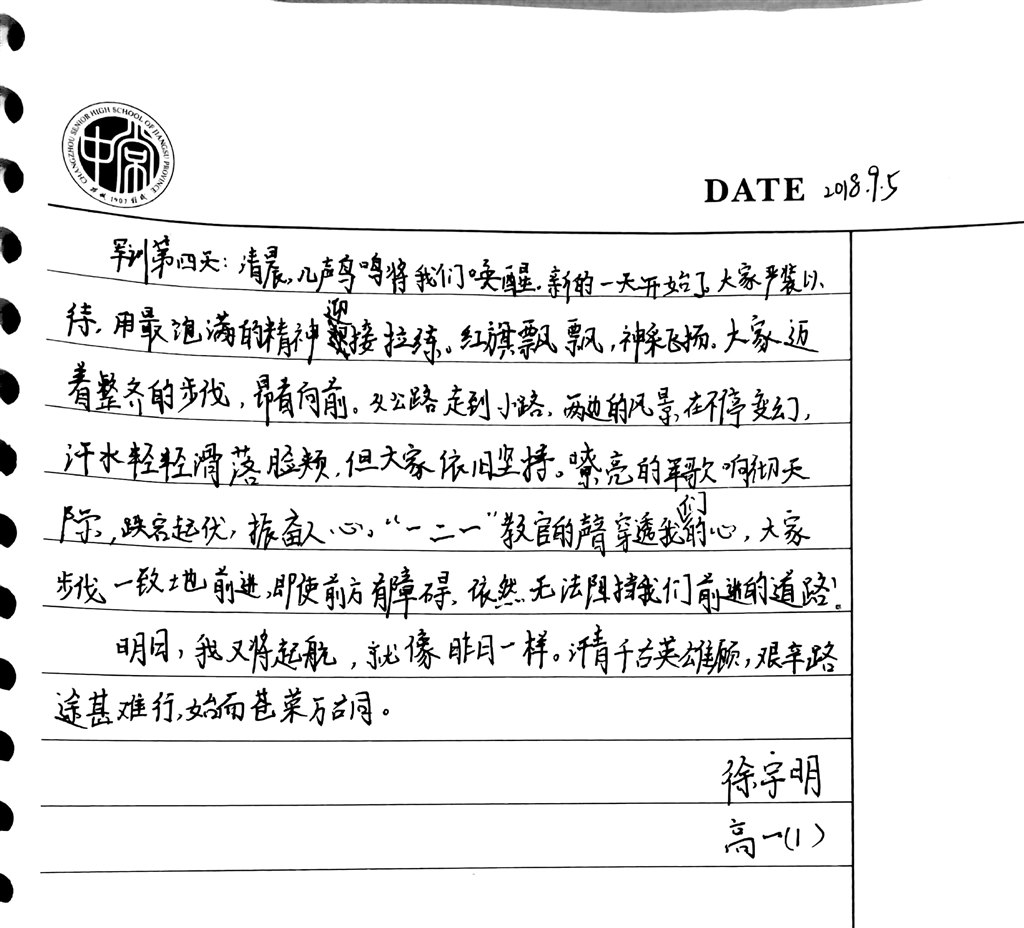 CHANGZHOU SENIOR HIGH SCHOOL OF JIANGSU PROVINCE
中常
1907
DATE 2018.9.5
军训第四天：清晨，几声鸟鸣将我们唤醒，新的一天开始了，大家严装以
待，用最饱满的精神迎接拉练。红旗飘飘，神采飞扬。大家迈
着整齐的步伐，昂首向前。从公路走到小路，两边的风景在不停变幻，
汗水轻轻滑落脸颊，但大家依旧坚持。嘹亮的军歌响彻天
际，跌宕起伏，振奋人心，“一二一”教官的声穿透我们的心，大家
步伐一致地前进，即使前方有障碍，依然无法阻挡我们前进的道路！
明日，我又将起航，就像昨日一样。汗青千古英雄顾，艰辛路
途甚难行，始而苍莱万古同。
徐宇明
高一（1）